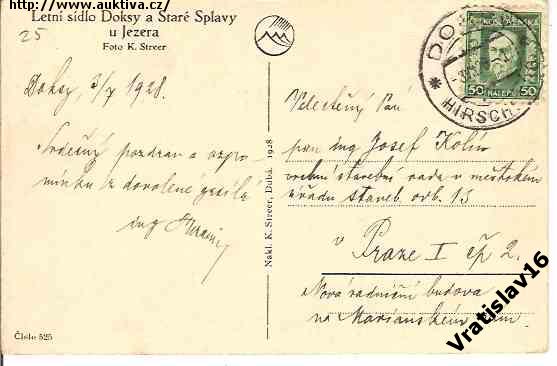 http://www.auktiva.cz/
25
Letní sídlo Doksy a Staré Splavy
u Jezera
Foto K. Streer
Doksy, 3/7 1928.
Srdečný pozdrav a vzpo-
mínku z dovolené zasílá
ing
Číslo 525
Nakl. K. Streer, Dubá. 1928
DO
HIRSCH
ČESKOSLOVENSKÁ
50 HALÉŘŮ 50
Velectěný Pan
pan ing Josef Kolín
vrchní stavební rada v městském
úřadu staveb. odb. 15
v Praze I čp 2.
Nová radniční budova
na Marianském nám.
Vratislav16